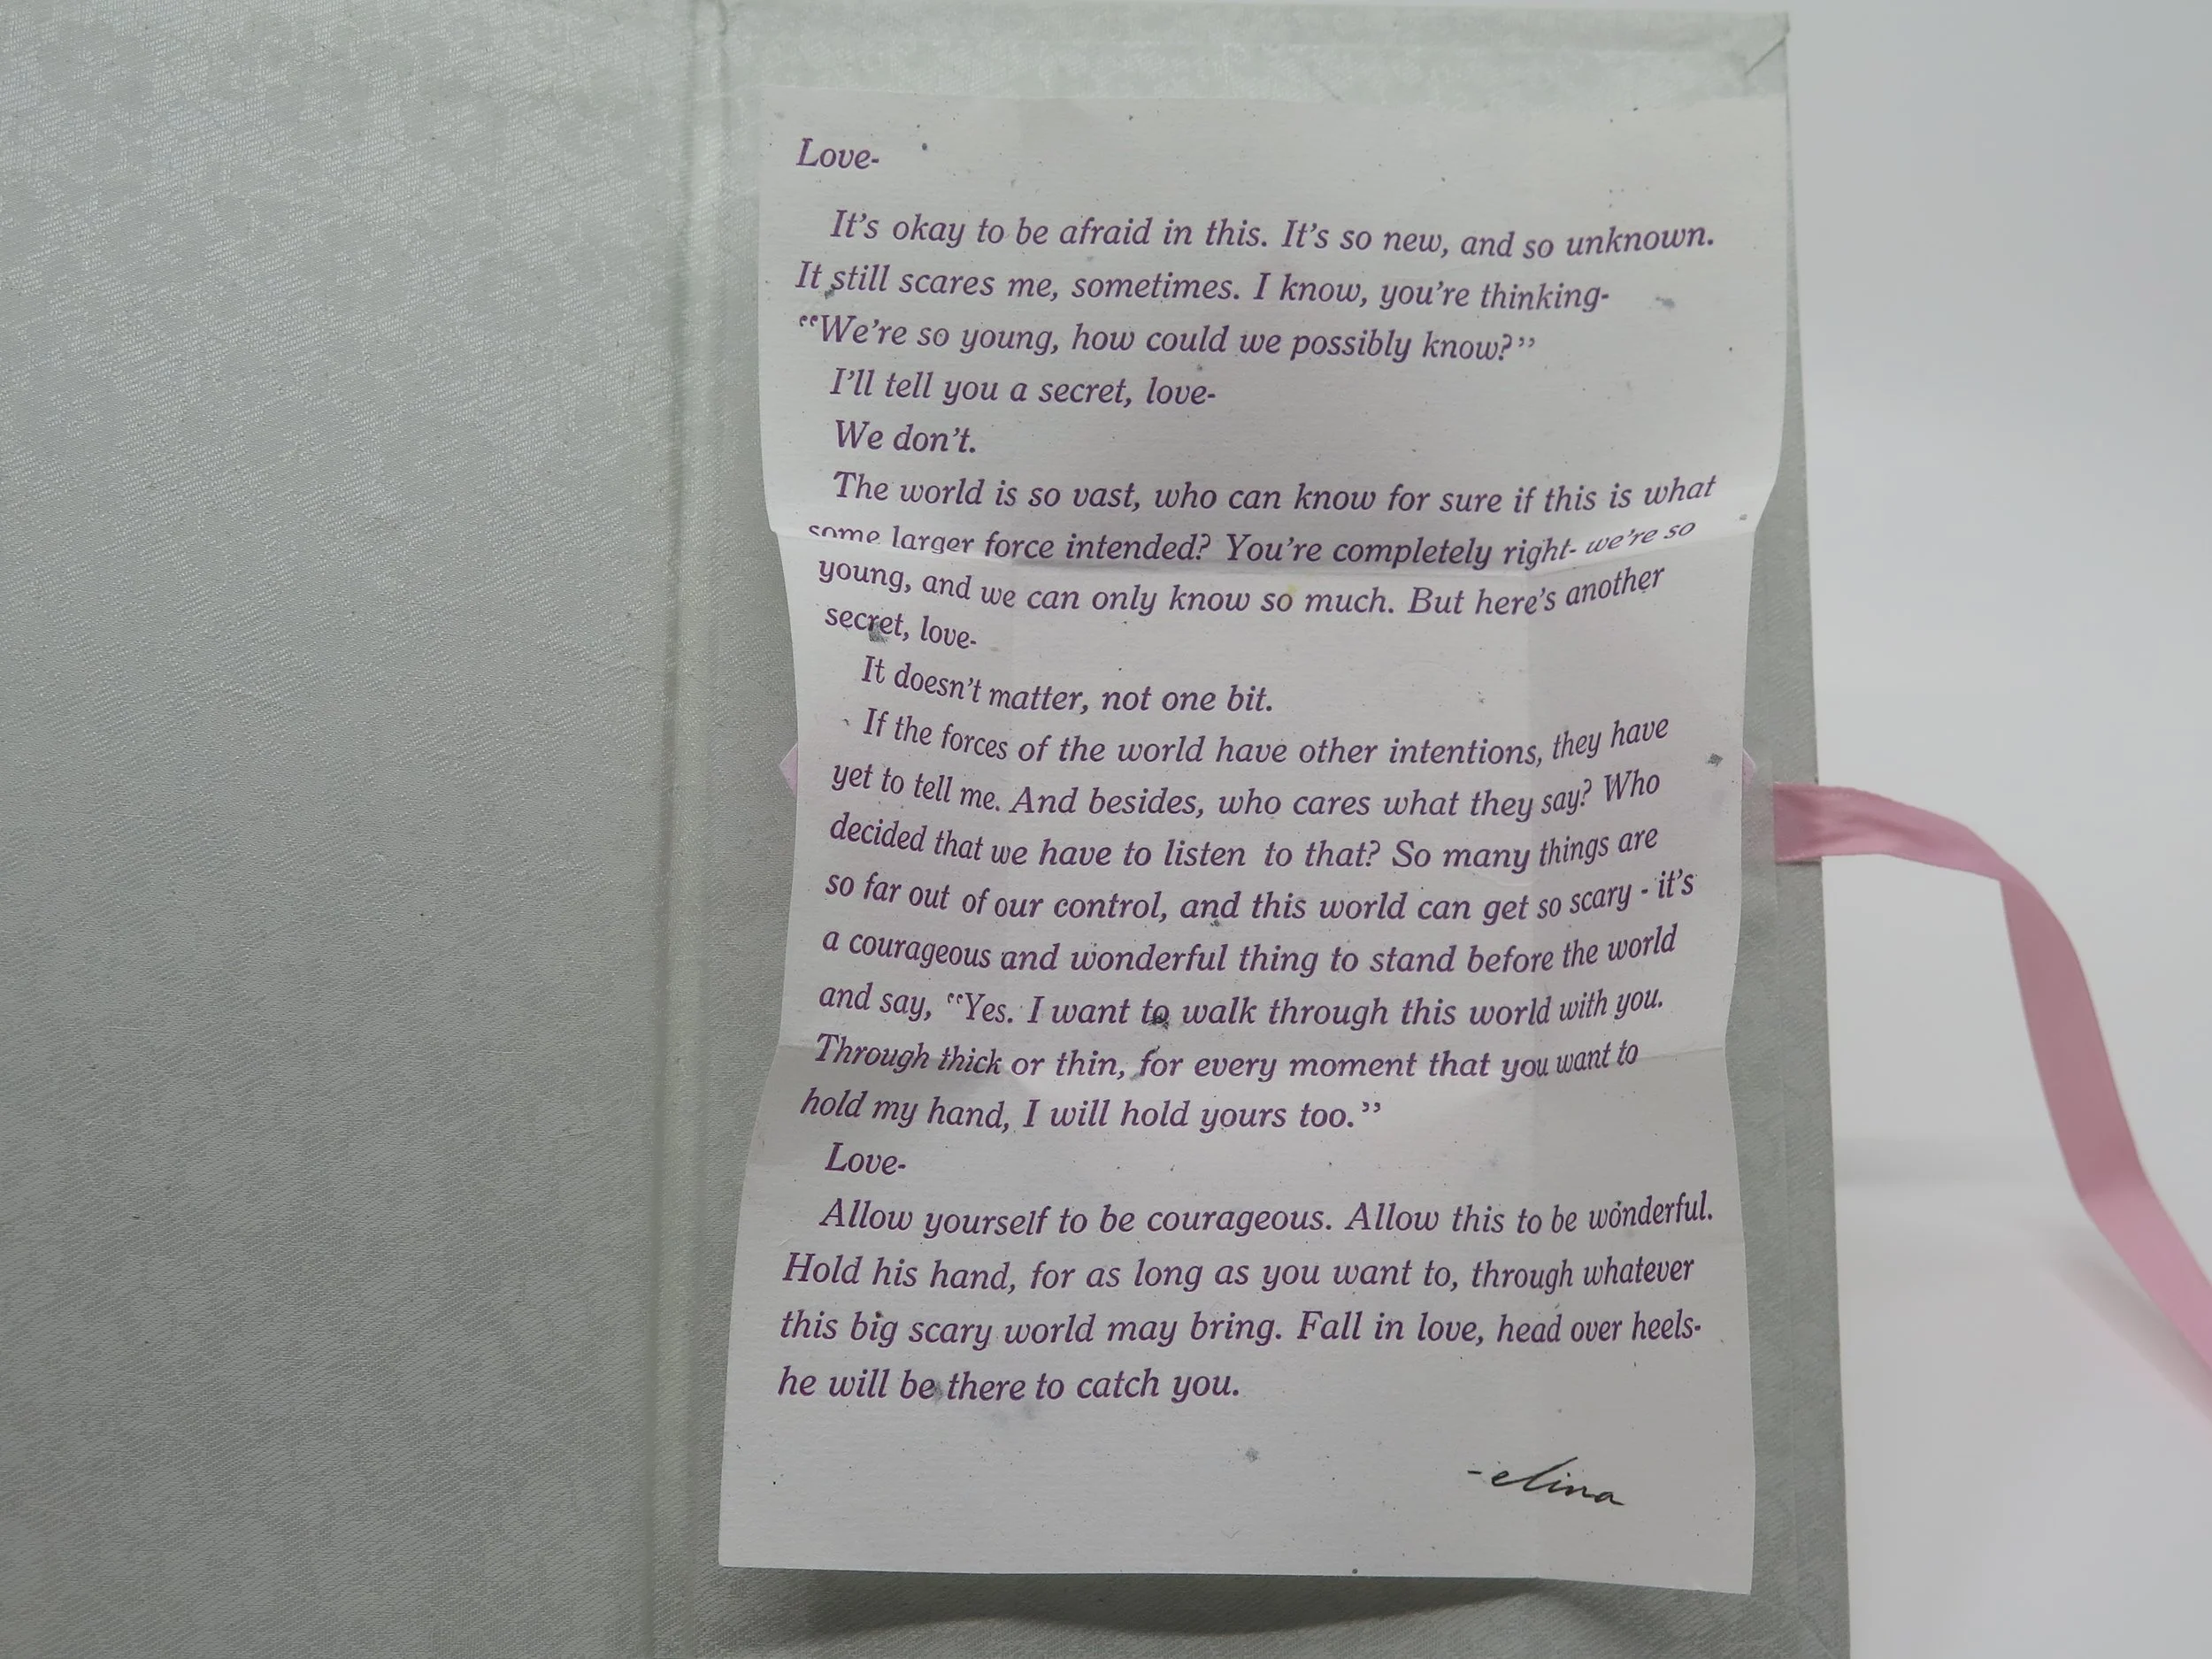 Love-
It's okay to be afraid in this. It's so new, and so unknown.
It still scares me, sometimes. I know, you're thinking-
“We're so young, how could we possibly know?”
I'll tell you a secret, love-
We don't.
The world is so vast, who can know for sure if this is what
some larger force intended? You're completely right- we're so
young, and we can only know so much. But here's another
secret, love-
It doesn't matter, not one bit.
If the forces of the world have other intentions, they have
yet to tell me. And besides, who cares what they say? Who
decided that we have to listen to that? So many things are
so far out of our control, and this world can get so scary - it's
a courageous and wonderful thing to stand before the world
and say, “Yes. I want to walk through this world with you.
Through thick or thin, for every moment that you want to
hold my hand, I will hold yours too.”
Love-
Allow yourself to be courageous. Allow this to be wonderful.
Hold his hand, for as long as you want to, through whatever
this big scary world may bring. Fall in love, head over heels-
he will be there to catch you.
-elina